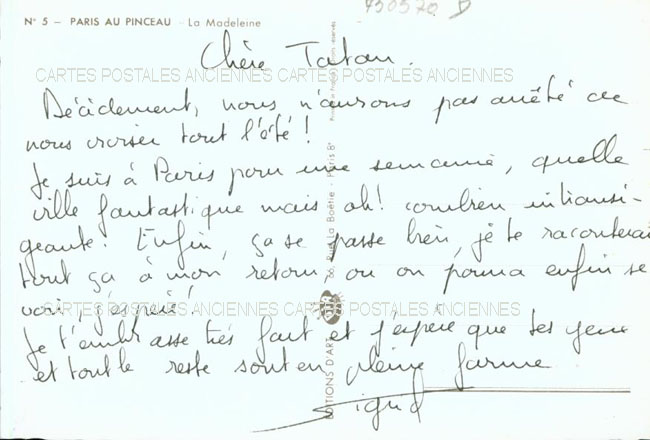 N° 5 — PARIS AU PINCEAU - La Madeleine
730570 D
Chère Tatan.
CARTES POSTALES ANCIENNES CARTES POSTALES ANCIENNES
Décidement, nous n'aurons pas arrêté de
nous croiser tout l'été !
Je suis à Paris pour une semaine, quelle
ville fantastique mais oh! combien intransi-
geante! Enfin, ça se passe bien, je te raconterai
tout ça à mon retour, où on pourra enfin se
voir, j'espère!
CARTES POSTALES ANCIENNES CARTES POSTALES ANCIENNES
Je t'embrasse très fort et j'espère que tes yeux
et tout le reste sont en pleine forme.
Sigrid
EDITIONS D'ART
Rue La Boëtie - Paris 8e